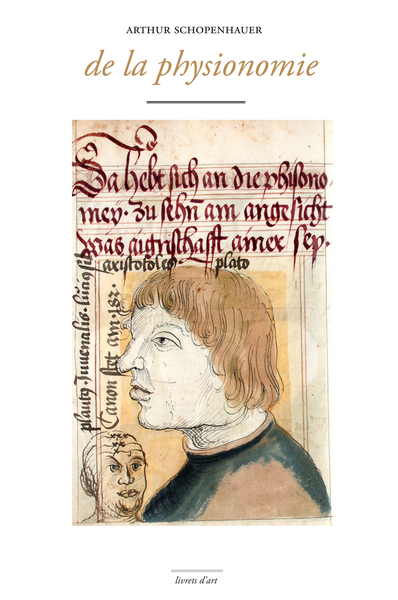 ARTHUR SCHOPENHAUER
de la physionomie
Da hebt sich an die phisono
mey. Zu sehn am angesicht
was aignschafft ainer sey.
aristotoles plato
plauty Juuenalis
Canon
livrets d'art